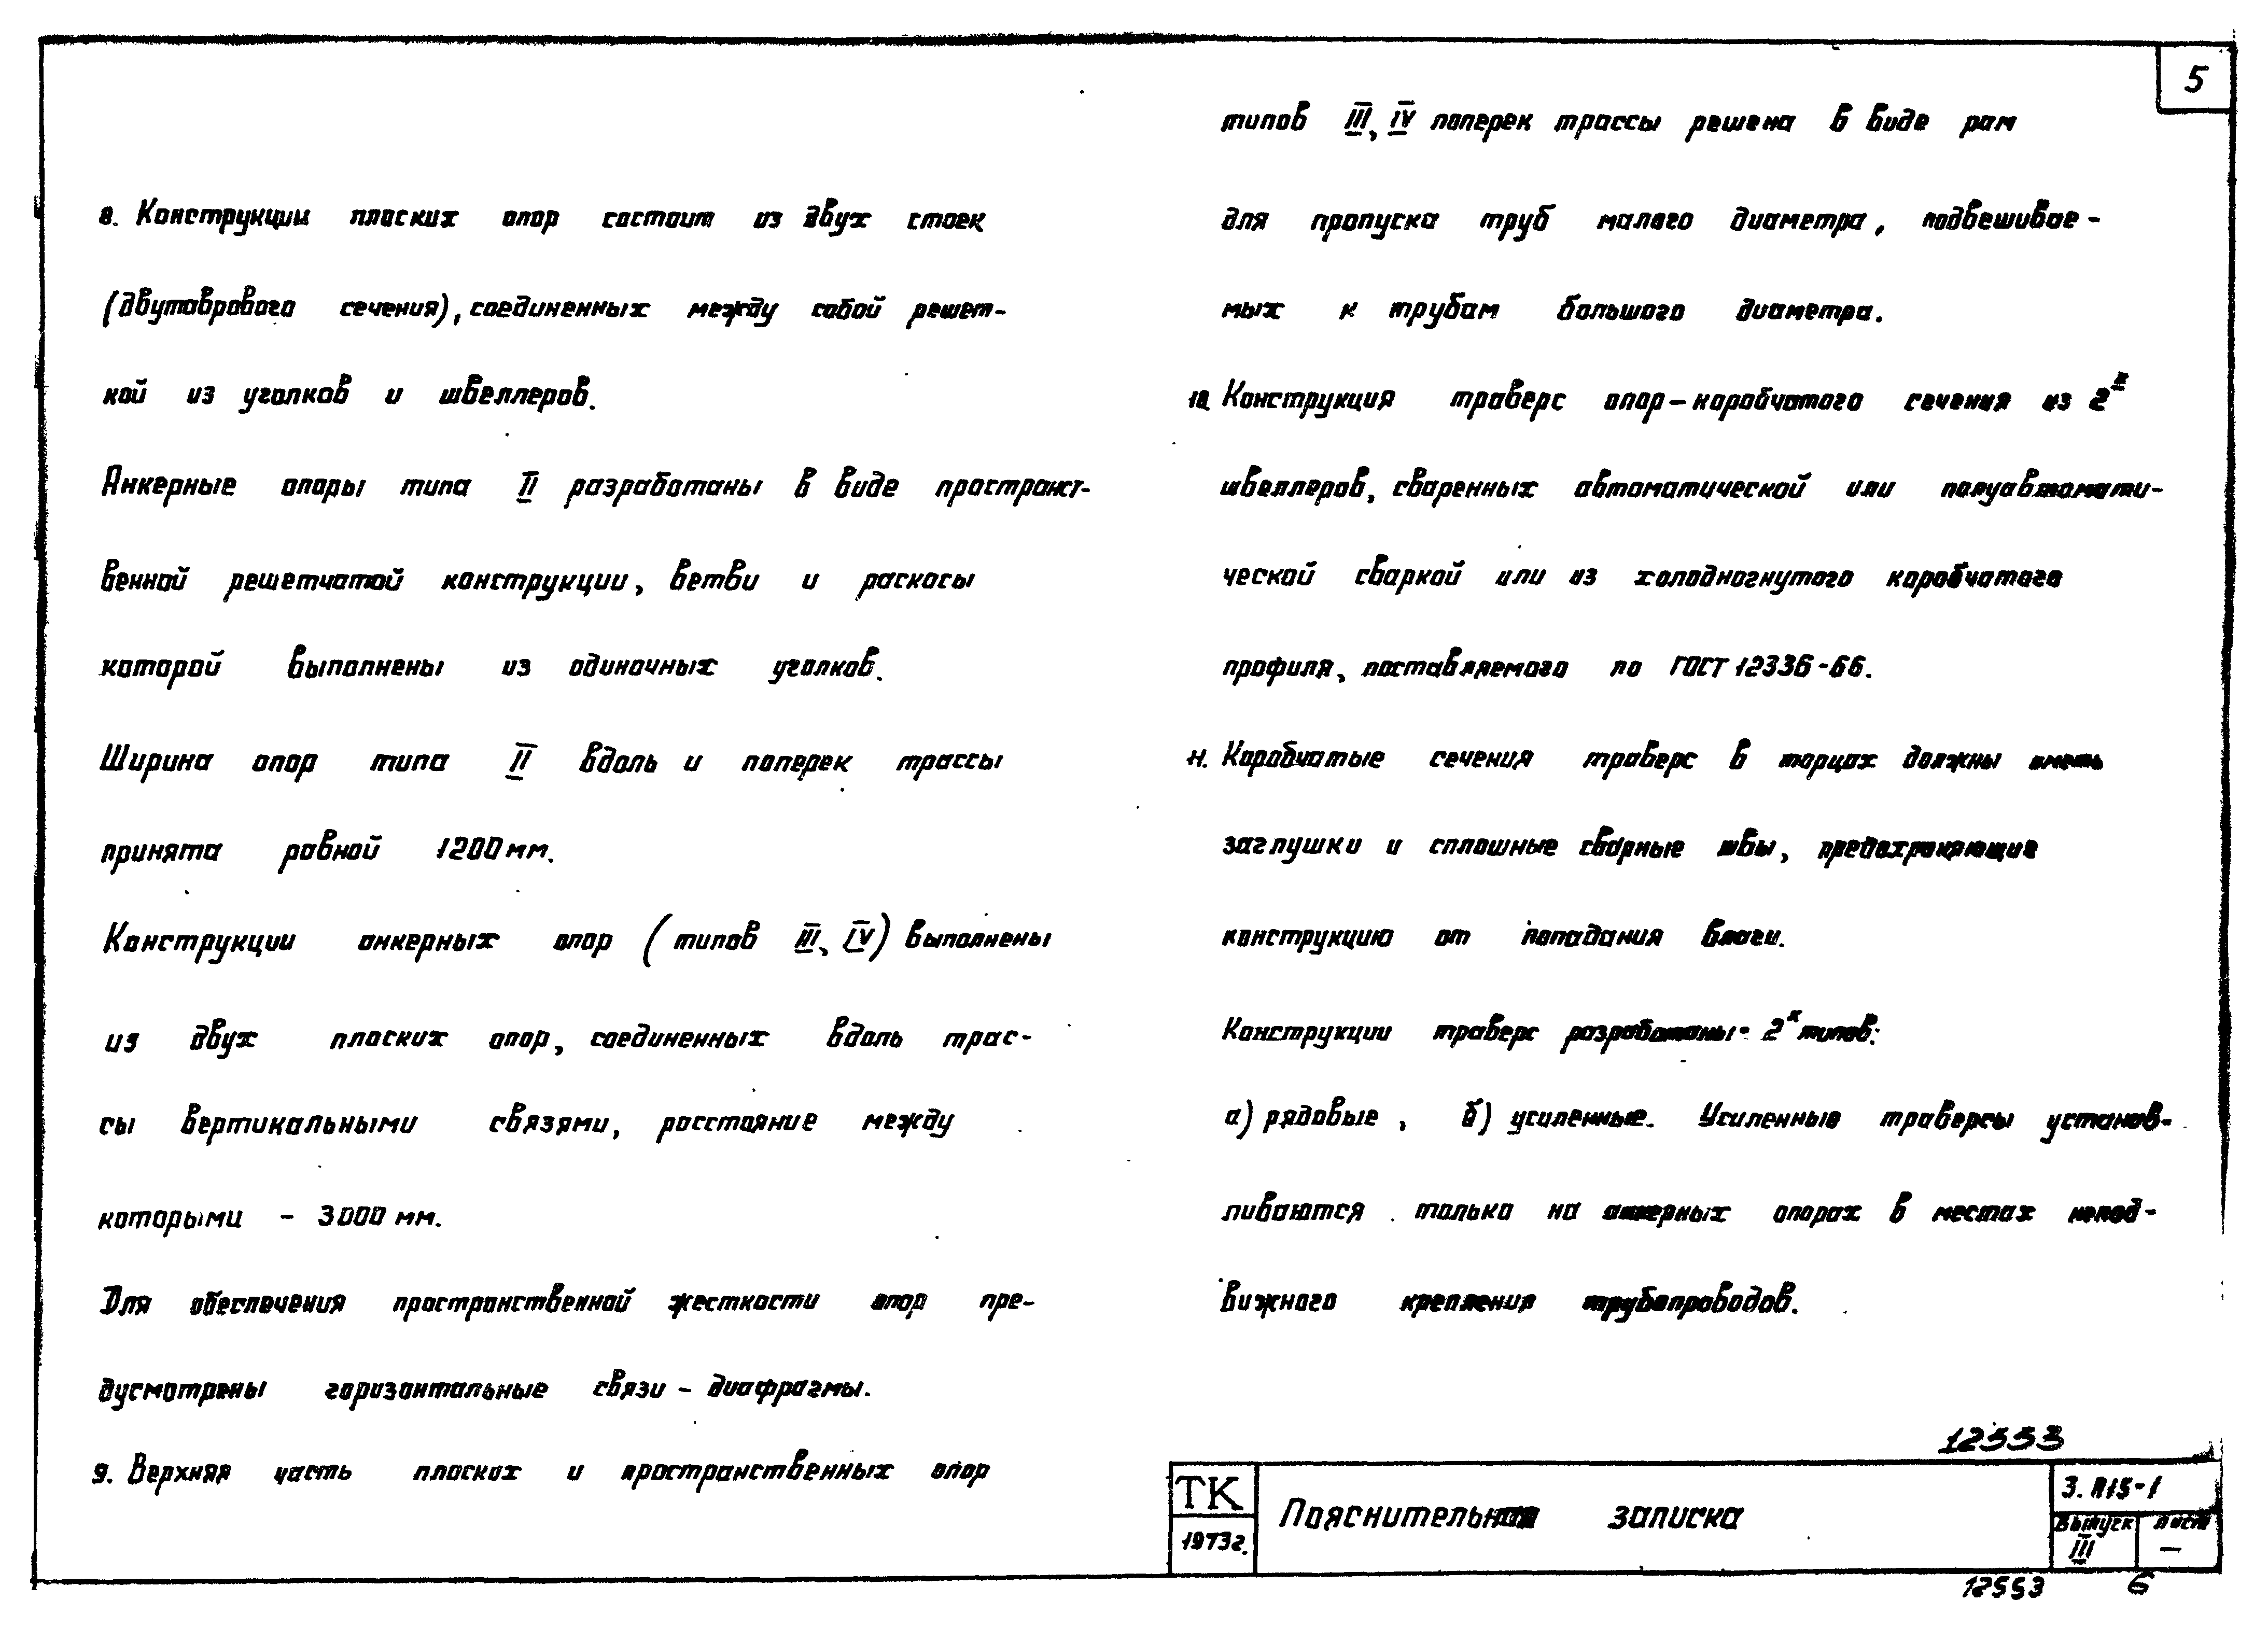 5
8. Конструкции плоских опор состоит из двух стоек
(двутаврового сечения), соединенных между собой решет-
кой из уголков и швеллеров.
Анкерные опоры типа II разработаны в виде пространст-
венной решетчатой конструкции, ветви и раскосы
которой выполнены из одиночных уголков.
Ширина опор типа II вдоль и поперек трассы
принята равной 1200 мм.
Конструкции анкерных опор (типов III, IV) выполнены
из двух плоских опор, соединенных вдоль трас-
сы вертикальными связями, расстояние между
которыми - 3000 мм.
Для обеспечения пространственной жесткости опор пре-
дусмотрены горизонтальные связи - диафрагмы.
9. Верхняя часть плоских и пространственных опор
типов III, IV поперек трассы решена в виде рам
для пропуска труб малого диаметра, подвешивае-
мых к трубам большого диаметра.
10. Конструкция траверс опор - коробчатого сечения из 2х
швеллеров, сваренных автоматической или полуавтомати-
ческой сваркой или из холодногнутого коробчатого
профиля, поставляемого по ГОСТ 12336-66.
11. Коробчатые сечения траверс в торцах должны иметь
заглушки и сплошные сварные швы, предохраняющие
конструкцию от попадания влаги.
Конструкции траверс разработаны - 2х типов:
а) рядовые, б) усиленные. Усиленные траверсы устанав-
ливаются только на анкерных опорах в местах непод-
вижного крепления трубопроводов.
12553
ТК
1973г.
Пояснительная записка
3.015-1
Выпуск лист
III —
12553 6